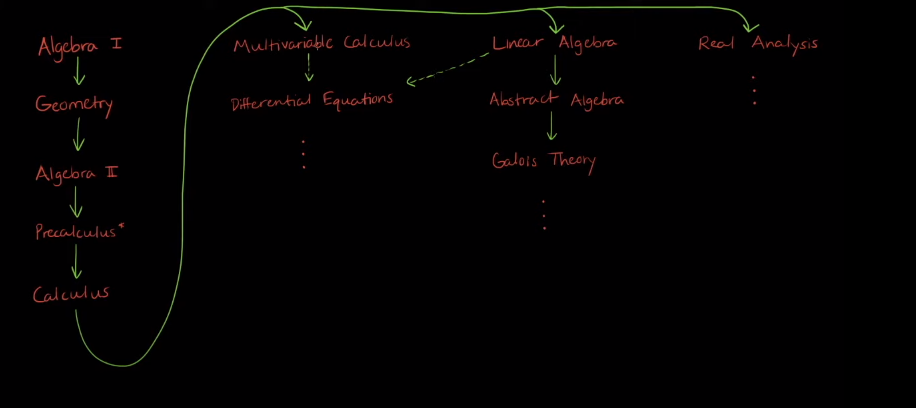 Algebra I
Geometry
Algebra II
Precalculus*
Calculus
Multivariable Calculus
Differential Equations
Linear Algebra
Abstract Algebra
Galois Theory
Real Analysis